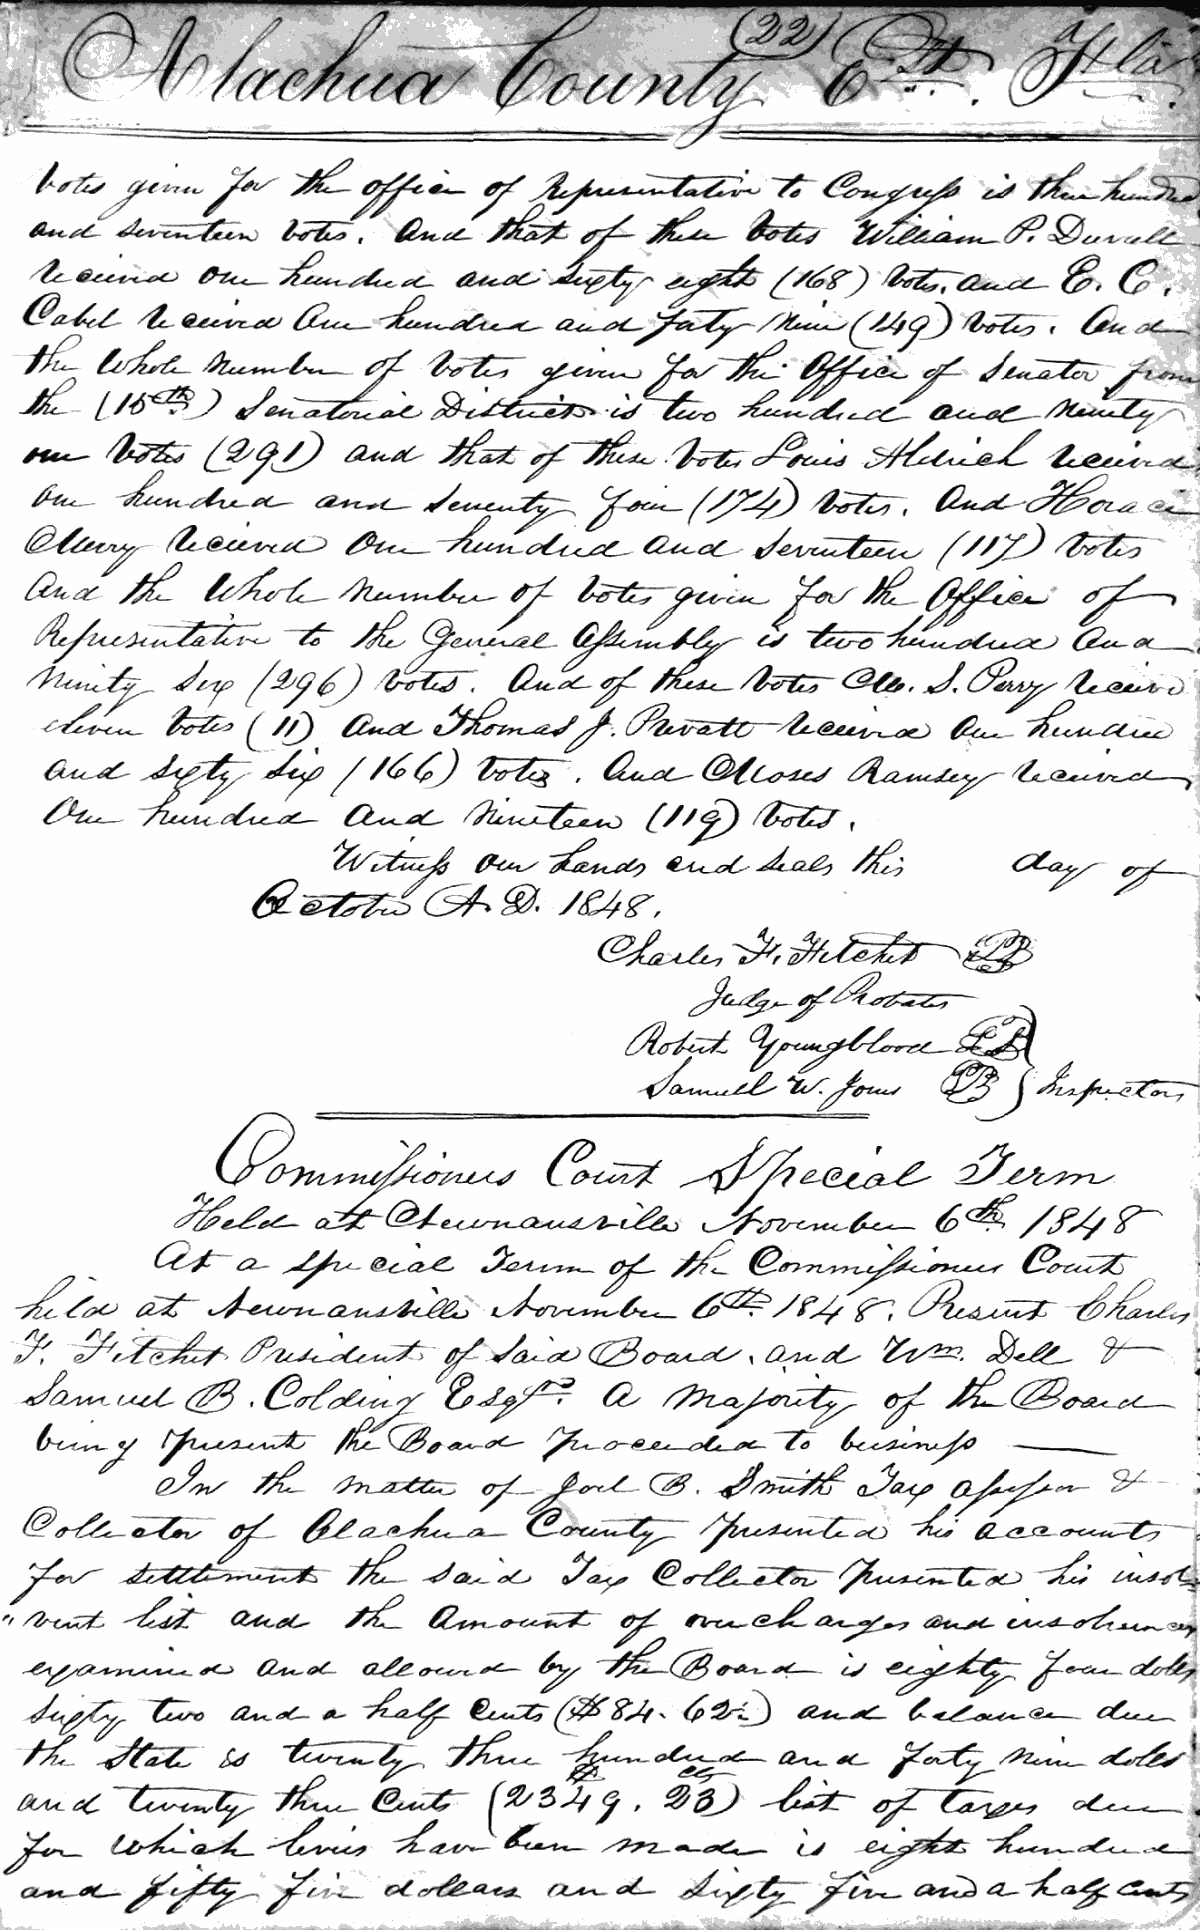 (22)
Alachua County Est. Fla.
Votes given for the office of Representative to Congress is three hundred
and seventeen votes. And that of these Votes William P. Duvall
received one hundred and sixty eight (168) Votes. and E. C.
Cabel received One hundred and forty Nine (149) Votes. And
the Whole Number of Votes given for the Office of Senator from
the (15th) Senatorial District is two hundred and Ninety
one Votes (291) and that of these Votes Louis Aldrich received
One hundred and Seventy four (174) Votes. And Horace
Merry Received One hundred and Seventeen (117) Votes
And the Whole Number of Votes given for the Office of
Representative to the General Assembly is two hundred And
Ninity Six (296) Votes. And of these Votes M. S. Perry Receive
eleven Votes (11) And Thomas J. Prevatt received One hundred
and sixty six (166) Votes. And Moses Ramsey received
One hundred And Nineteen (119) Votes.
Witness our hands and seals this day of
October A. D. 1848.
Charles F. Fitchet
Judge of Probates
Robert Youngblood LS
Samuel W. Jones Inspectors
Commissioners Court Special Term
Held at Newnansville November 6th 1848
At a special Term of the Commissioners Court
held at Newnansville November 6th 1848. Present Charles
F. Fitchet President of Said Board. and Wm. Dell &
Samuel B. Colding Esqrs. A Majority of the Board
being present the Board proceeded to business
In the matter of Joel B. Smith Tax assessor &
Collector of Alachua County presented his accounts
for settlement the said Tax Collector presented his insol-
"vent list and the Amount of overcharges and insolvencies
examined and allowed by the Board is eighty four dolls
Sixty two and a half Cents ($84. 62½) and balance due
the State is twenty three hundred and forty nine dolls
and twenty three Cents ($2349. 23cts) list of taxes due
for which levies have been made is eight hundred
and fifty five dollars and Sixty five and a half Cents